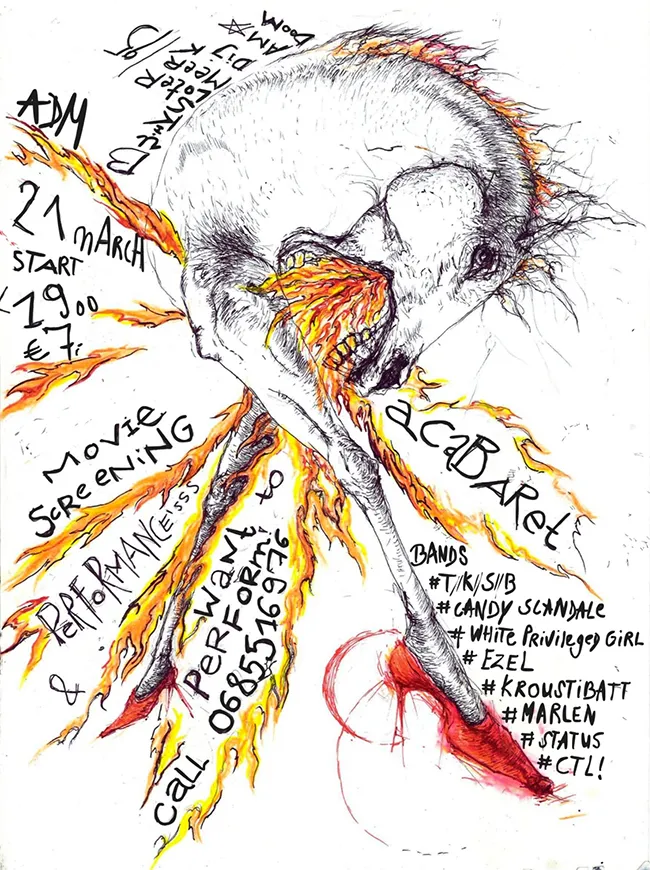 ADM
Buiten
Sloter
Meer
Dijk
AM☆
DOOM
21 MARCH
START
19 00
€ 7,-
MOVIE
SCREENING
PERFORMANCE'SSS
&
WANT to
PERFORM?
CALL 0685516976
acaBARet
BANDS
#T//K//S//B
#CANDY SCANDALE
#WHITE PRIVILEGED GIRL
#EZEL
#KROUSTIBATT
#MARLEN
#STATUS
#CTL!